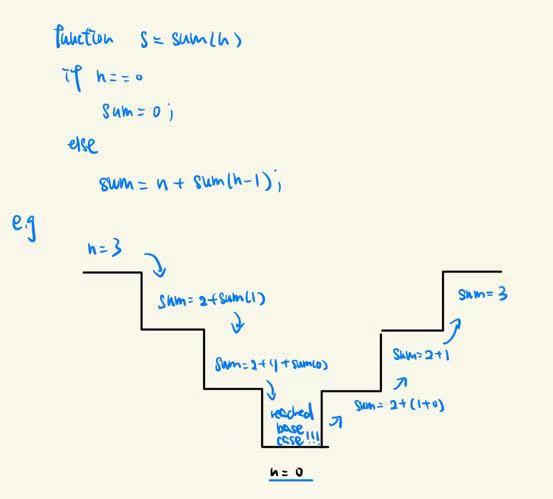 function s = sum(n)
if n == 0
sum = 0;
else
sum = n + sum(n-1);
e.g
n = 3
sum = 2 + sum(1)
sum = 2 + (1 + sum(0)
reached
base
case!!!
n = 0
sum = 2 + (1+0)
sum = 2 + 1
sum = 3